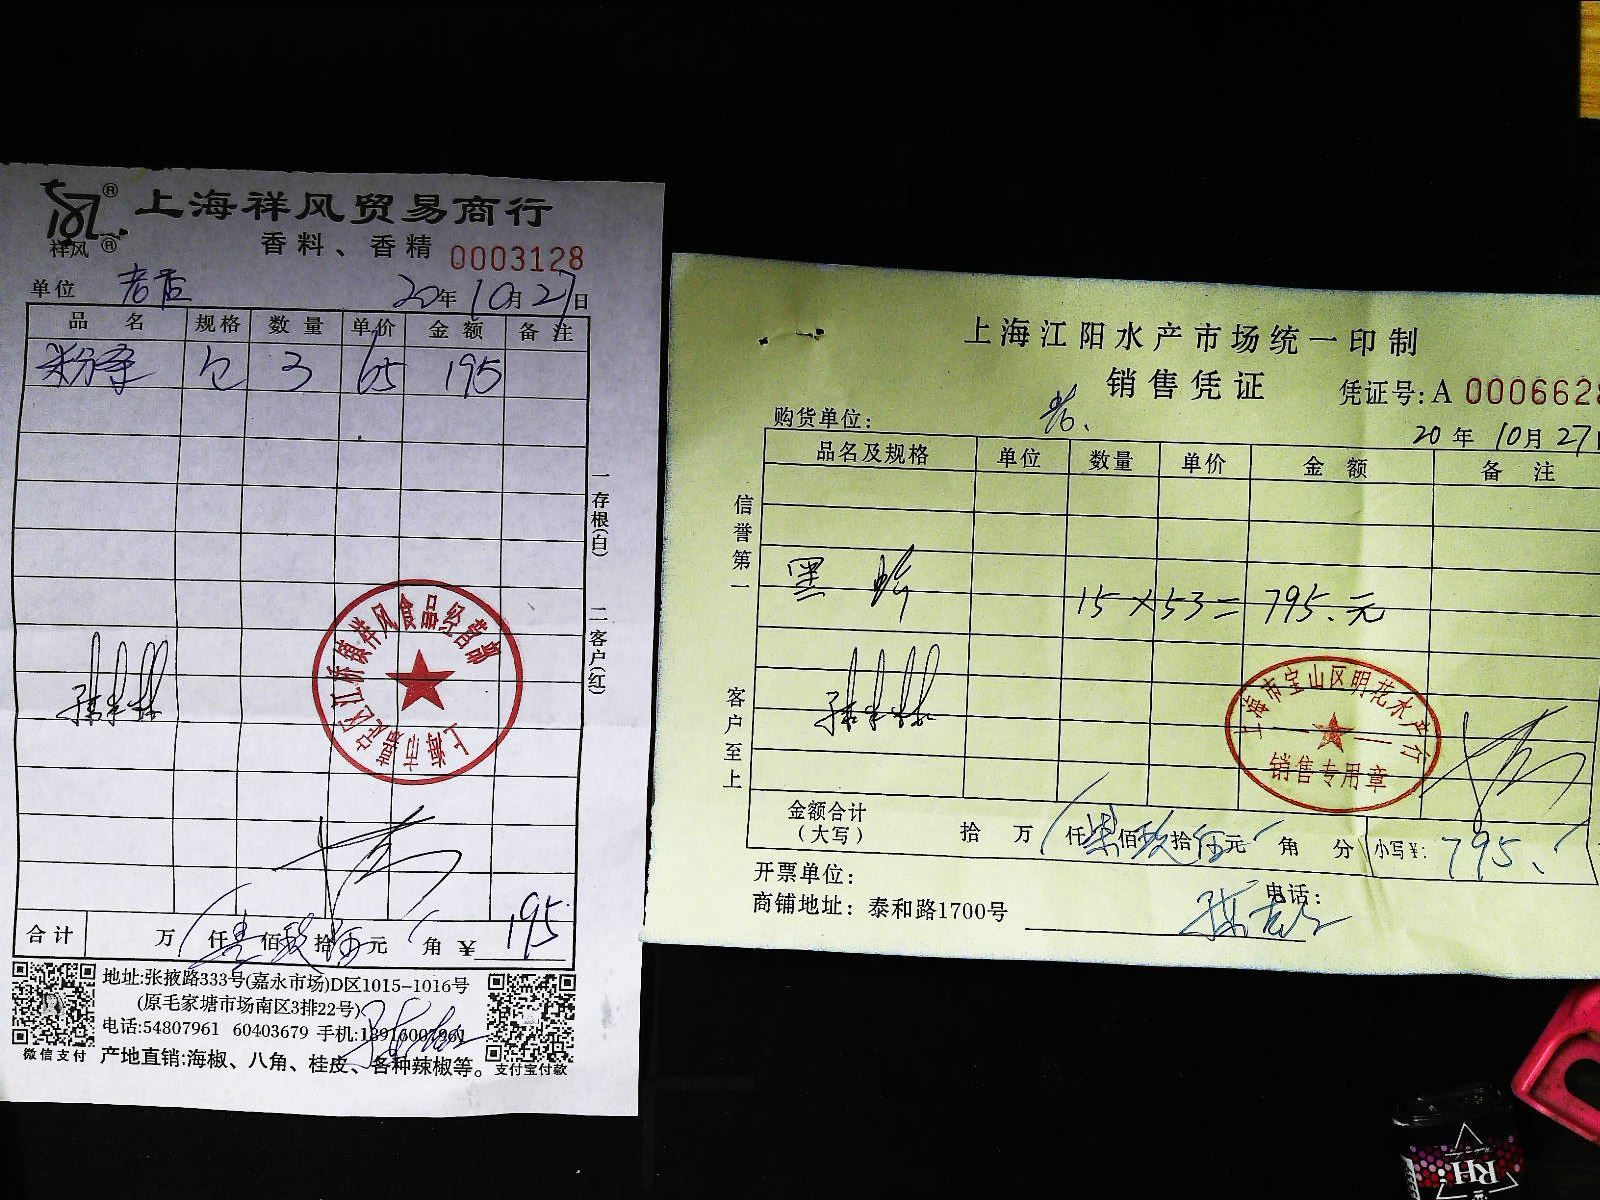 上海祥风贸易商行
祥风
香料、香精 0003128
单位 老店 20年10月27日
品名 规格 数量 单价 金额 备注
包 3 65 195
一存根(白) 二客户(红)
上海市嘉定区江桥镇祥风食品经营部
合计 万仟壹佰玖拾伍元角 ¥195
地址:张掖路333号(嘉永市场)D区1015-1016号
(原毛家塘市场南区3排22号)
电话:54807961 60403679 手机:18916007961
微信支付 产地直销:海椒、八角、桂皮、各种辣椒等。 支付宝付款
上海江阳水产市场统一印制
销售凭证 凭证号:A 0006628
购货单位: 老、
20年10月27日
品名及规格 单位 数量 单价 金额 备注
信誉第一
黑 15×53=795.元
客户至上
上海市宝山区明花水产行
销售专用章
金额合计(大写) 拾万仟柒佰玖拾伍元角分 小写¥:795.
开票单位:
商铺地址:泰和路1700号 电话:
RH